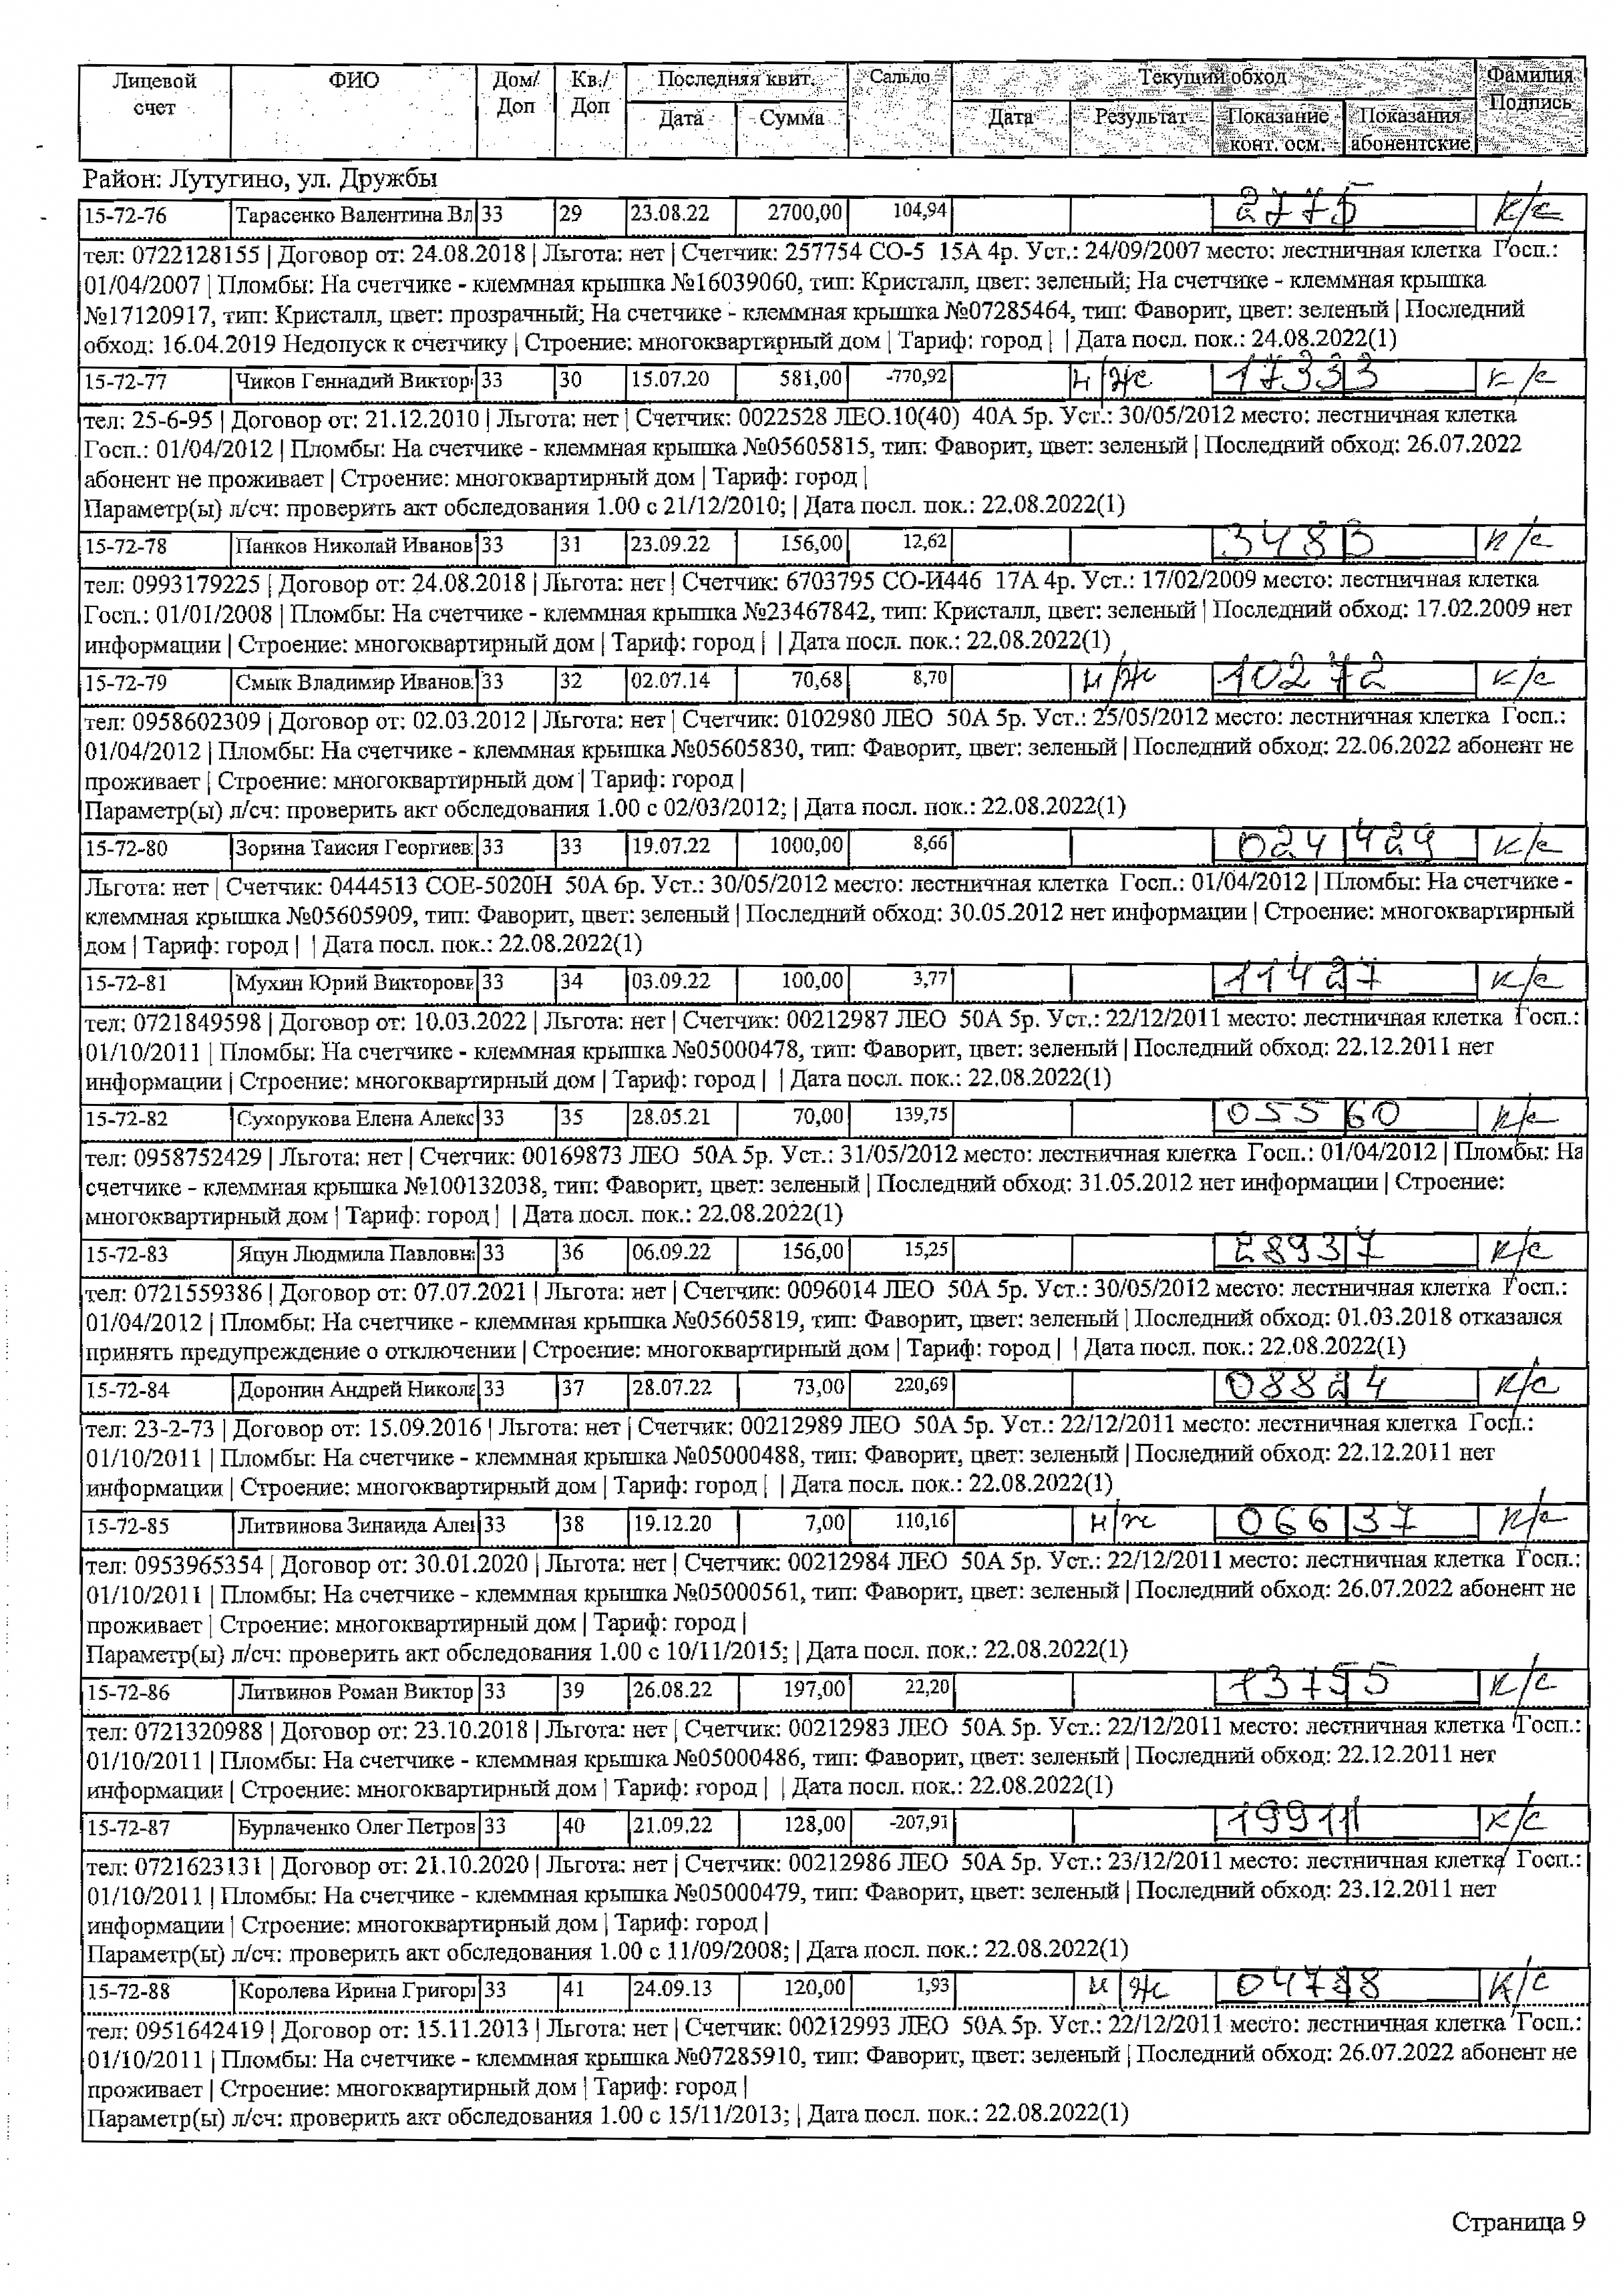 Лицевой счет | ФИО | Дом/ Доп | Кв./ Доп | Последняя квит. | Сальдо | Текущий обход | Фамилия Подпись
Дата | Сумма | Дата | Результат | Показание конт. осм. | Показания абонентские
Район: Лутугино, ул. Дружбы
15-72-76 | Тарасенко Валентина Вл | 33 | 29 | 23.08.22 | 2700,00 | 104,94 | 2775 | к/с
тел: 0722128155 | Договор от: 24.08.2018 | Льгота: нет | Счетчик: 257754 СО-5 15А 4р. Уст.: 24/09/2007 место: лестничная клетка Госп.:
01/04/2007 | Пломбы: На счетчике - клеммная крышка №16039060, тип: Кристалл, цвет: зеленый; На счетчике - клеммная крышка
№17120917, тип: Кристалл, цвет: прозрачный; На счетчике - клеммная крышка №07285464, тип: Фаворит, цвет: зеленый | Последний
обход: 16.04.2019 Недопуск к счетчику | Строение: многоквартирный дом | Тариф: город | | Дата посл. пок.: 24.08.2022(1)
15-72-77 | Чиков Геннадий Виктор | 33 | 30 | 15.07.20 | 581,00 | -770,92 | н/ж | 17333 | к/с
тел: 25-6-95 | Договор от: 21.12.2010 | Льгота: нет | Счетчик: 0022528 ЛЕО.10(40) 40А 5р. Уст.: 30/05/2012 место: лестничная клетка
Госп.: 01/04/2012 | Пломбы: На счетчике - клеммная крышка №05605815, тип: Фаворит, цвет: зеленый | Последний обход: 26.07.2022
абонент не проживает | Строение: многоквартирный дом | Тариф: город |
Параметр(ы) л/сч: проверить акт обследования 1.00 с 21/12/2010; | Дата посл. пок.: 22.08.2022(1)
15-72-78 | Панков Николай Иванов | 33 | 31 | 23.09.22 | 156,00 | 12,62 | 3483 | к/с
тел: 0993179225 | Договор от: 24.08.2018 | Льгота: нет | Счетчик: 6703795 СО-И446 17А 4р. Уст.: 17/02/2009 место: лестничная клетка
Госп.: 01/01/2008 | Пломбы: На счетчике - клеммная крышка №23467842, тип: Кристалл, цвет: зеленый | Последний обход: 17.02.2009 нет
информации | Строение: многоквартирный дом | Тариф: город | | Дата посл. пок.: 22.08.2022(1)
15-72-79 | Смык Владимир Иванов | 33 | 32 | 02.07.14 | 70,68 | 8,70 | н/ж | 10272 | к/с
тел: 0958602309 | Договор от: 02.03.2012 | Льгота: нет | Счетчик: 0102980 ЛЕО 50А 5р. Уст.: 25/05/2012 место: лестничная клетка Госп.:
01/04/2012 | Пломбы: На счетчике - клеммная крышка №05605830, тип: Фаворит, цвет: зеленый | Последний обход: 22.06.2022 абонент не
проживает | Строение: многоквартирный дом | Тариф: город |
Параметр(ы) л/сч: проверить акт обследования 1.00 с 02/03/2012; | Дата посл. пок.: 22.08.2022(1)
15-72-80 | Зорина Таисия Георгиев | 33 | 33 | 19.07.22 | 1000,00 | 8,66 | 024429 | к/с
Льгота: нет | Счетчик: 0444513 СОЕ-5020Н 50А 6р. Уст.: 30/05/2012 место: лестничная клетка Госп.: 01/04/2012 | Пломбы: На счетчике -
клеммная крышка №05605909, тип: Фаворит, цвет: зеленый | Последний обход: 30.05.2012 нет информации | Строение: многоквартирный
дом | Тариф: город | | Дата посл. пок.: 22.08.2022(1)
15-72-81 | Мухин Юрий Викторови | 33 | 34 | 03.09.22 | 100,00 | 3,77 | 11427 | к/с
тел: 0721849598 | Договор от: 10.03.2022 | Льгота: нет | Счетчик: 00212987 ЛЕО 50А 5р. Уст.: 22/12/2011 место: лестничная клетка Госп.:
01/10/2011 | Пломбы: На счетчике - клеммная крышка №05000478, тип: Фаворит, цвет: зеленый | Последний обход: 22.12.2011 нет
информации | Строение: многоквартирный дом | Тариф: город | | Дата посл. пок.: 22.08.2022(1)
15-72-82 | Сухорукова Елена Алекс | 33 | 35 | 28.05.21 | 70,00 | 139,75 | 05560 | к/с
тел: 0958752429 | Льгота: нет | Счетчик: 00169873 ЛЕО 50А 5р. Уст.: 31/05/2012 место: лестничная клетка Госп.: 01/04/2012 | Пломбы: На
счетчике - клеммная крышка №100132038, тип: Фаворит, цвет: зеленый | Последний обход: 31.05.2012 нет информации | Строение:
многоквартирный дом | Тариф: город | | Дата посл. пок.: 22.08.2022(1)
15-72-83 | Яцун Людмила Павловн | 33 | 36 | 06.09.22 | 156,00 | 15,25 | 28937 | к/с
тел: 0721559386 | Договор от: 07.07.2021 | Льгота: нет | Счетчик: 0096014 ЛЕО 50А 5р. Уст.: 30/05/2012 место: лестничная клетка Госп.:
01/04/2012 | Пломбы: На счетчике - клеммная крышка №05605819, тип: Фаворит, цвет: зеленый | Последний обход: 01.03.2018 отказался
принять предупреждение о отключении | Строение: многоквартирный дом | Тариф: город | | Дата посл. пок.: 22.08.2022(1)
15-72-84 | Доронин Андрей Никола | 33 | 37 | 28.07.22 | 73,00 | 220,69 | 08824 | к/с
тел: 23-2-73 | Договор от: 15.09.2016 | Льгота: нет | Счетчик: 00212989 ЛЕО 50А 5р. Уст.: 22/12/2011 место: лестничная клетка Госп.:
01/10/2011 | Пломбы: На счетчике - клеммная крышка №05000488, тип: Фаворит, цвет: зеленый | Последний обход: 22.12.2011 нет
информации | Строение: многоквартирный дом | Тариф: город | | Дата посл. пок.: 22.08.2022(1)
15-72-85 | Литвинова Зинаида Алек | 33 | 38 | 19.12.20 | 7,00 | 110,16 | н/ж | 06637 | к/с
тел: 0953965354 | Договор от: 30.01.2020 | Льгота: нет | Счетчик: 00212984 ЛЕО 50А 5р. Уст.: 22/12/2011 место: лестничная клетка Госп.:
01/10/2011 | Пломбы: На счетчике - клеммная крышка №05000561, тип: Фаворит, цвет: зеленый | Последний обход: 26.07.2022 абонент не
проживает | Строение: многоквартирный дом | Тариф: город |
Параметр(ы) л/сч: проверить акт обследования 1.00 с 10/11/2015; | Дата посл. пок.: 22.08.2022(1)
15-72-86 | Литвинов Роман Виктор | 33 | 39 | 26.08.22 | 197,00 | 22,20 | 13755 | к/с
тел: 0721320988 | Договор от: 23.10.2018 | Льгота: нет | Счетчик: 00212983 ЛЕО 50А 5р. Уст.: 22/12/2011 место: лестничная клетка Госп.:
01/10/2011 | Пломбы: На счетчике - клеммная крышка №05000486, тип: Фаворит, цвет: зеленый | Последний обход: 22.12.2011 нет
информации | Строение: многоквартирный дом | Тариф: город | | Дата посл. пок.: 22.08.2022(1)
15-72-87 | Бурлаченко Олег Петров | 33 | 40 | 21.09.22 | 128,00 | -207,91 | 19911 | к/с
тел: 0721623131 | Договор от: 21.10.2020 | Льгота: нет | Счетчик: 00212986 ЛЕО 50А 5р. Уст.: 23/12/2011 место: лестничная клетка Госп.:
01/10/2011 | Пломбы: На счетчике - клеммная крышка №05000479, тип: Фаворит, цвет: зеленый | Последний обход: 23.12.2011 нет
информации | Строение: многоквартирный дом | Тариф: город |
Параметр(ы) л/сч: проверить акт обследования 1.00 с 11/09/2008; | Дата посл. пок.: 22.08.2022(1)
15-72-88 | Королева Ирина Григор | 33 | 41 | 24.09.13 | 120,00 | 1,93 | н/ж | к/с
тел: 0951642419 | Договор от: 15.11.2013 | Льгота: нет | Счетчик: 00212993 ЛЕО 50А 5р. Уст.: 22/12/2011 место: лестничная клетка Госп.:
01/10/2011 | Пломбы: На счетчике - клеммная крышка №07285910, тип: Фаворит, цвет: зеленый | Последний обход: 26.07.2022 абонент не
проживает | Строение: многоквартирный дом | Тариф: город |
Параметр(ы) л/сч: проверить акт обследования 1.00 с 15/11/2013; | Дата посл. пок.: 22.08.2022(1)
Страница 9